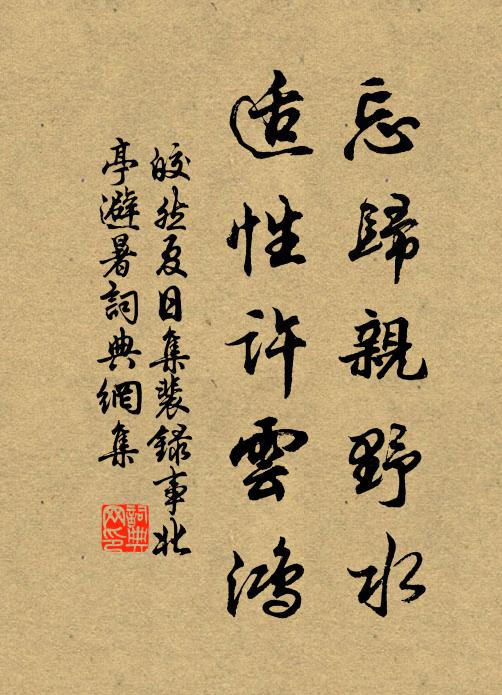 忘歸親野水
适性許雲鴻
皎然夏日集裴錄事北
亭避暑詞典網集
詞典
网印